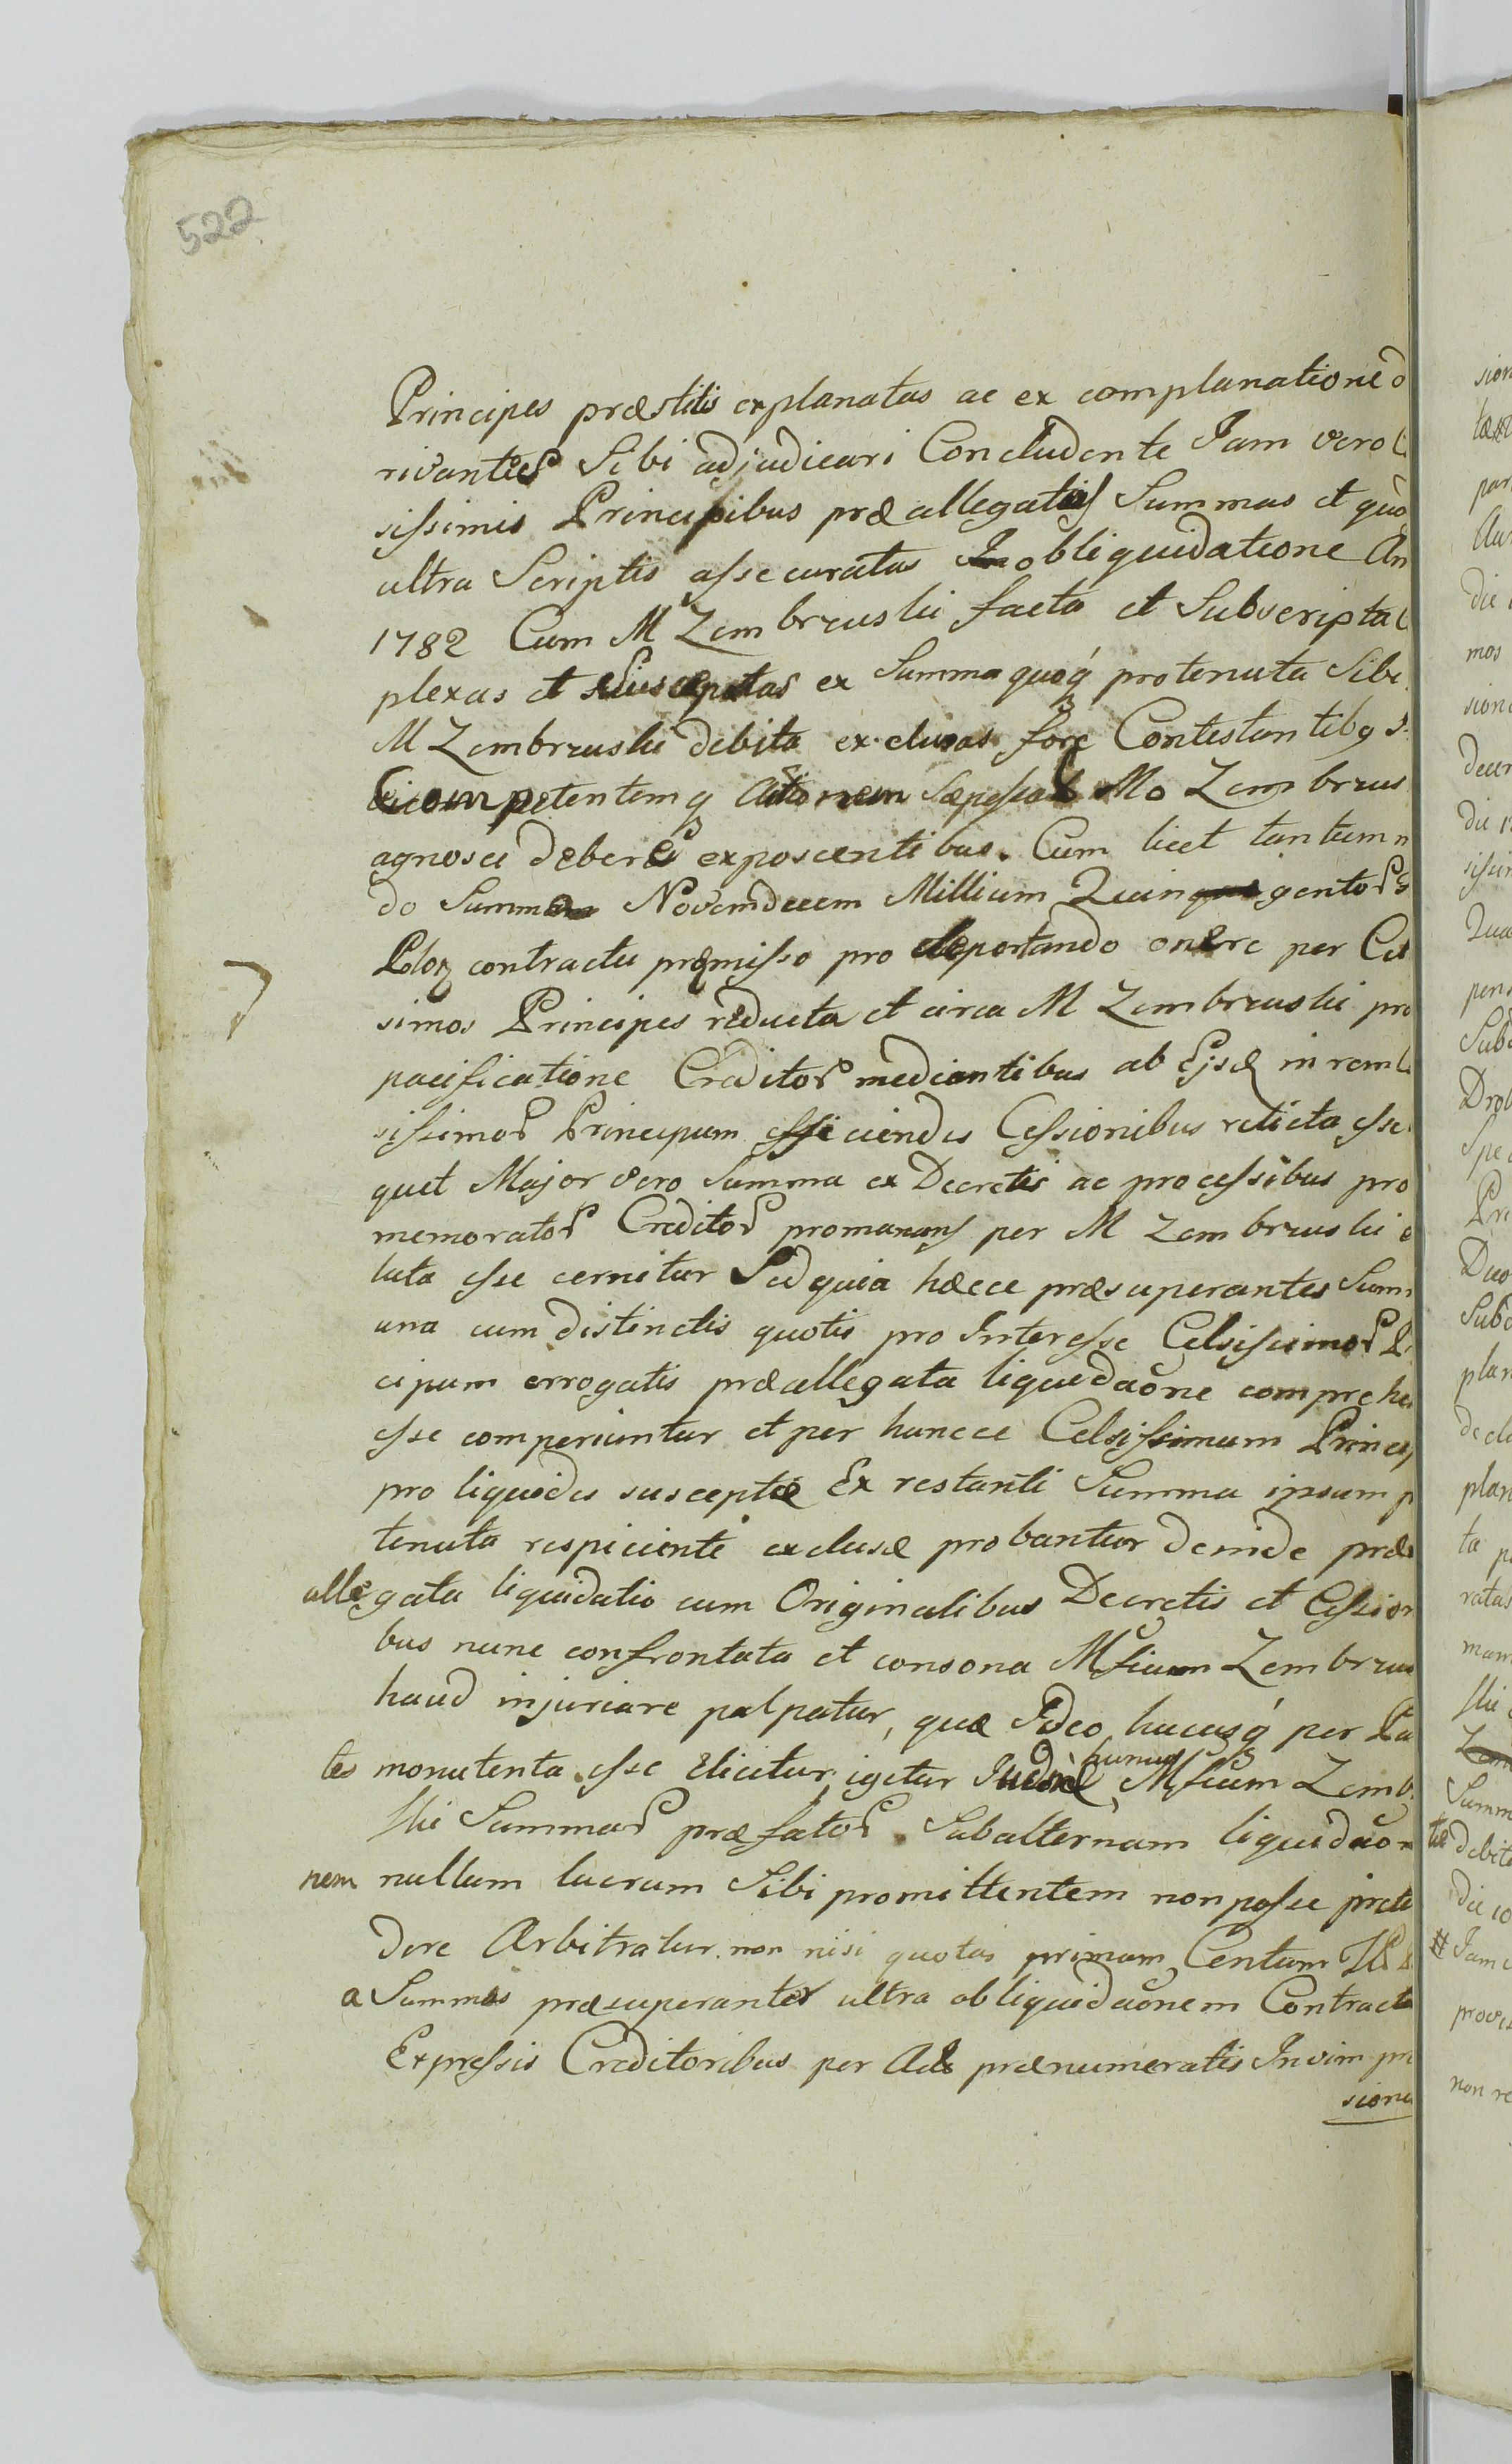 522
Principes præstitis explanatas ac ex complanatione
rivantes Sibi adjudicari Concludente Jam vero
sissimis Principibus præallegatis Summas et quo
ultra Scriptis assecuratas obliquidatione An
1782 Cum M Zembrzuski facta et Subscripta
plexas et suisceptas ex Summa quoq pro tenuta Sibi
M Zembrzuski debita exclusas fore Contestantibq
competentemq Actionem M̅o Zembrzus
agnosci debere exposcentibus. Cum licet tantum
do Summa Novemdecem Millium Quingentor
Ploz contractu præmisso pro deportando onere per Cel
simos Principes reducta et circa M Zembrzuski pro
pacificatione Creditor mediantibus ab Ejsd in rem
sissimor Principum efficiendis Cessionibus relicta esse
quet Major vero Summa ex Decretis ac processibus pro
memorator Creditor promanans per M Zembrzuski
luta esse cernitur Sed quia hæcce præsuperantes Sum
una cum distinctis quotis pro Interesse Celsissimor P
cipum errogatis præallegata liquidaõne comprehe
esse comperiuntur et per huncce Celsissimum Princi
pro liquidis susceptæ Ex restanti Summa ipsum p
tenuta respiciente exclusæ probantur deinde præ
allegata liquidatio cum Originalibus Decretis et Cession
bus nunc confrontata et consona Mficum Zembrzus
haud injuriare palpatur, quæ Ideo hucusq per Pa
tes manutenta esse elicitur, igitur hunc Mficum Zemb
ski Summar præfator Subalternam liquidaõ
nem nullum lucrum Sibi promittentem non posse præte
dere Arbitratur non nisi quotas primam Centum
a Summas præsuperantes ultra obliquidaõnem Contracta
Expressis Creditoribus per Act prænumeratis In vim pr
siones